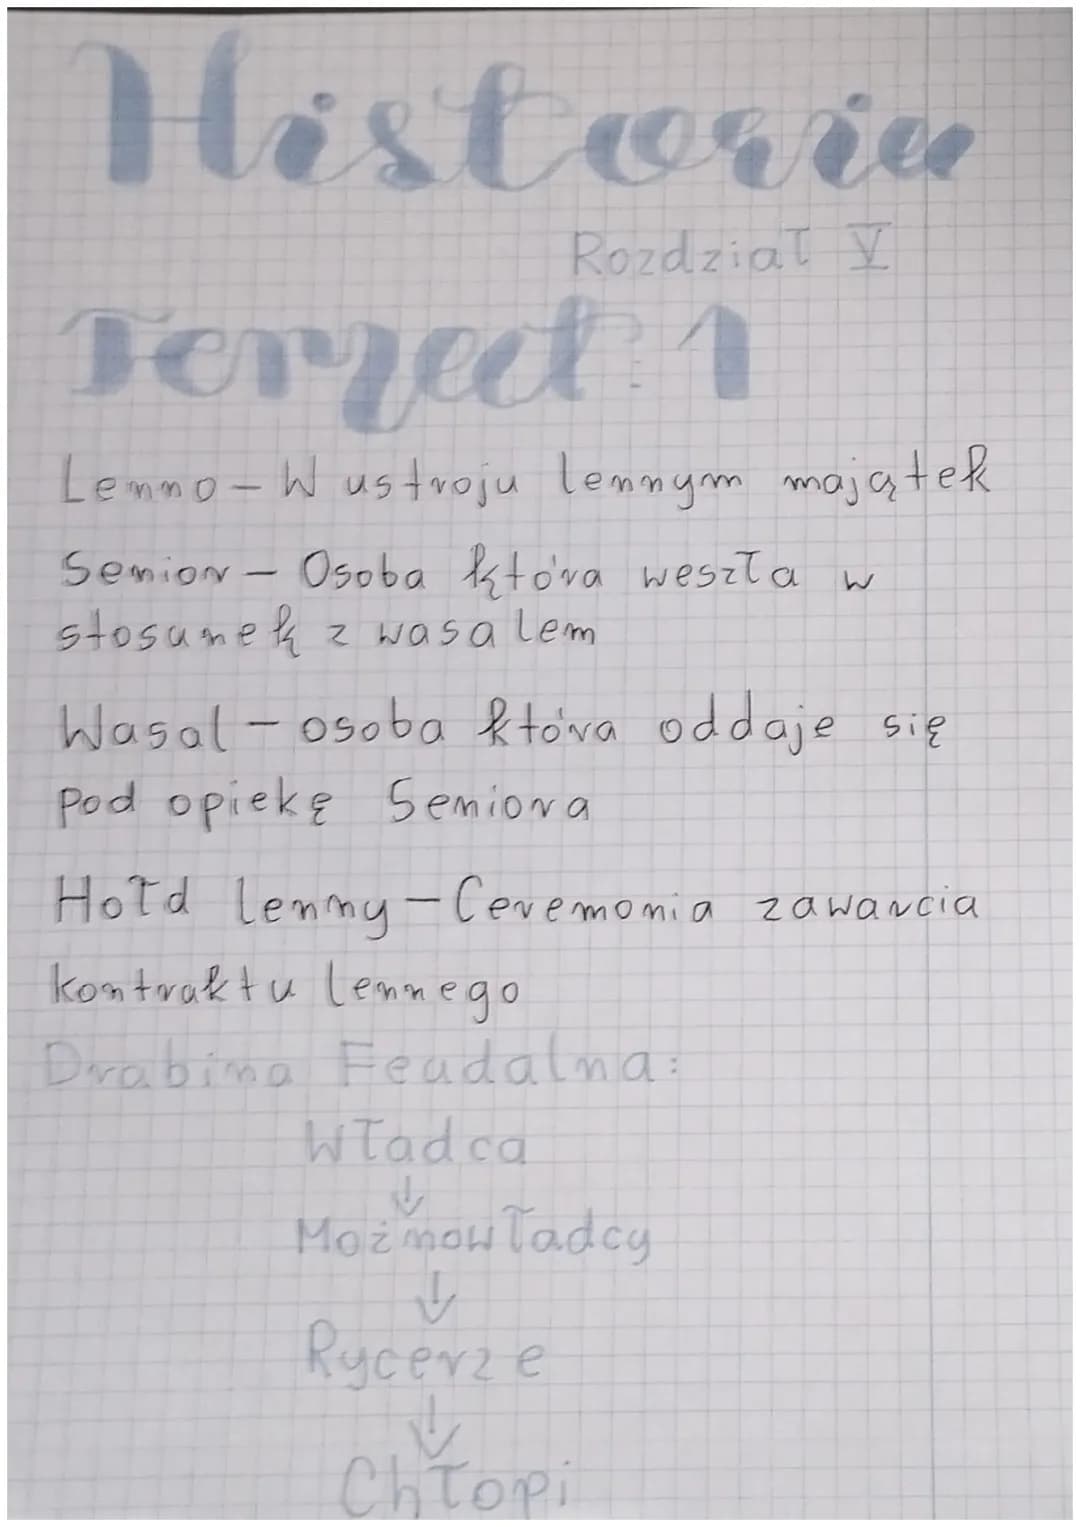 Historia
Rozdział V
Temat: 1
Lenno – W ustroju lennym majątek
Senior – Osoba która weszła w
stosunek z wasalem
Wasal – osoba która oddaje się
pod opiekę Seniora
Hołd lenny – Ceremonia zawarcia
kontraktu lennego
Drabina Feudalna:
Władca
↓
Możnowładcy
↓
Rycerze
↓
Chłopi